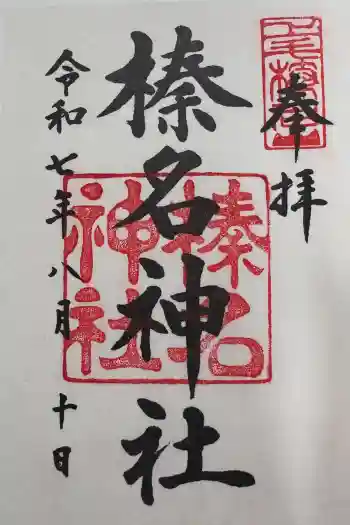 奉拝
榛名神社
令和七年八月十日
榛名
神社